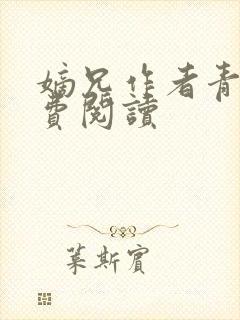 嫡兄作者青
費閱讀
葉斯賓